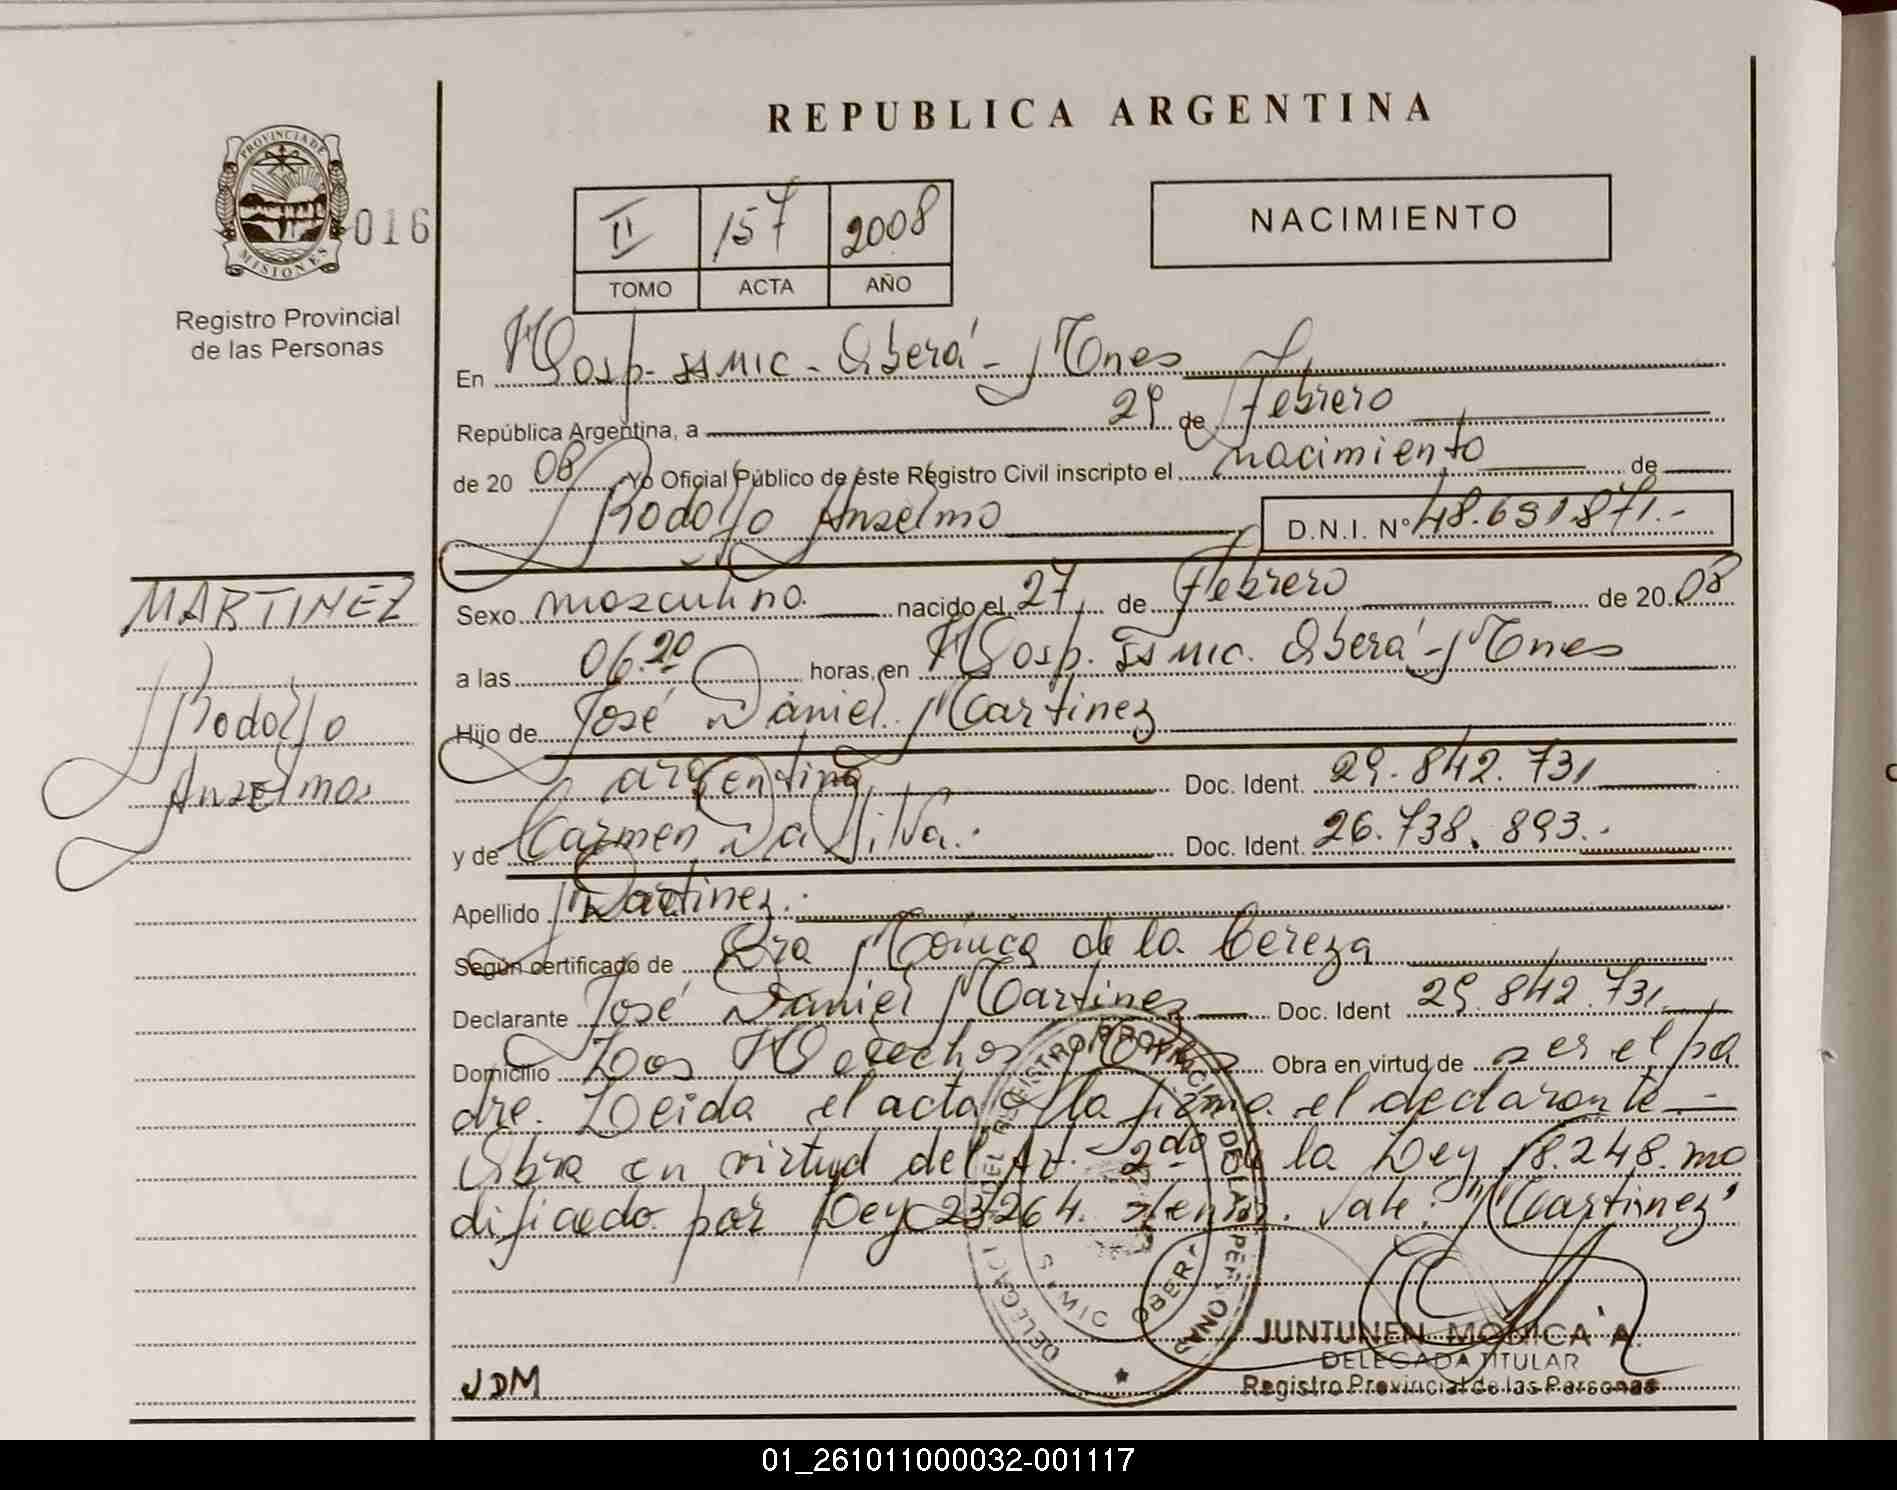 REPUBLICA ARGENTINA
PROVINCIA DE
MISIONES
016
Registro Provincial
de las Personas
II 157 2008
TOMO ACTA AÑO
NACIMIENTO
En Hosp. SSMIC - Oberá - Mnes
República Argentina, a 29 de Febrero
de 20 08 Yo Oficial Público de éste Registro Civil inscripto el nacimiento de
Rodolfo Anselmo D.N.I. Nº 48.691.871.-
MARTINEZ
Rodolfo
Anselmo.
Sexo masculino. nacido el 27 de Febrero de 20 08
a las 06.20 horas, en Hosp. SSMIC. Oberá - Mnes
Hijo de José Daniel Martinez
argentino Doc. Ident. 29.842.731
y de Carmen Da Silva. Doc. Ident. 26.738.893.
Apellido Martinez.
Según certificado de Dra Mónica de la Cereza
Declarante José Daniel Martinez Doc. Ident 29.842.731
Domicilio Los Helechos Mnes Obra en virtud de ser el pa
dre. Leida el acta la firma el declarante.-
Obra en virtud del Art. 2do de la Ley 18.248. mo
dificado por Ley 23.264. Vale: "Martinez"
DELEGACI DEL REGISTRO PROVINCIAL DE LAS PERSONAS
OBERÁ
JUNTUNEN MONICA A.
DELEGADA TITULAR
Registro Provincial de las Personas
JDM
01_261011000032-001117